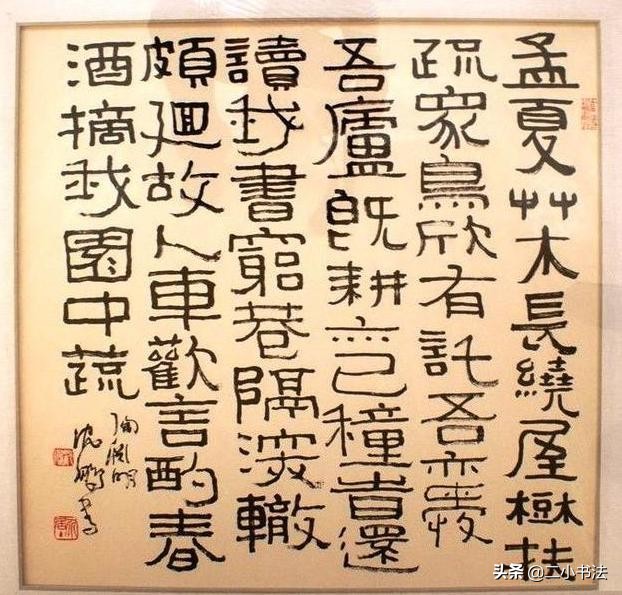 孟夏艸木長繞屋樹扶
疏眾鳥欣有託吾亦愛
吾廬既耕亦已種旹還
讀我書窮巷隔深轍
頗迴故人車歡言酌春
酒摘我園中蔬
陶淵明
沈鵬書
头条 @二小书法